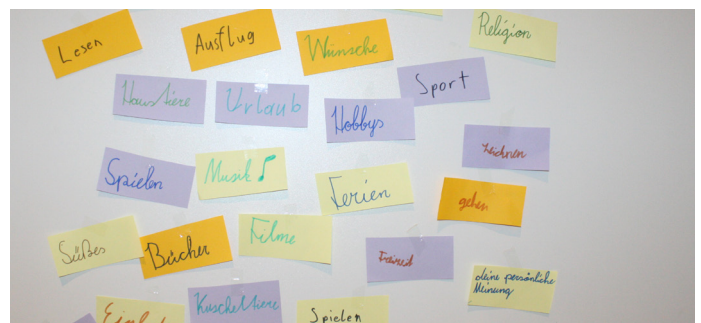 Lesen
Ausflug
Wünsche
Religion
Haustiere
Urlaub
Hobbys
Sport
Spielen
Musik
Ferien
zeichnen
gehen
Süßes
Bücher
Filme
deine persönliche
Meinung
Kuscheltiere
Spielen